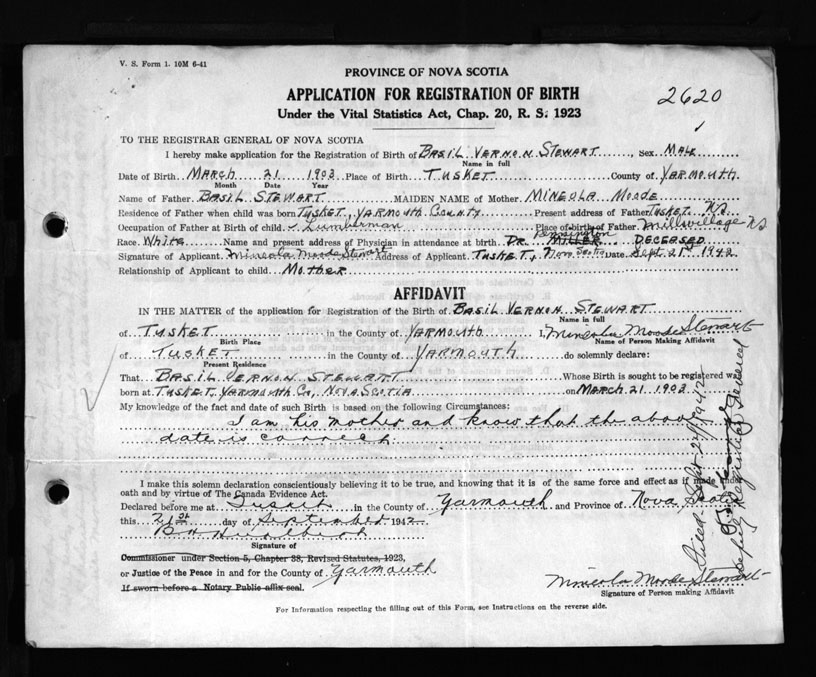 V. S. Form 1. 10M 6-41
PROVINCE OF NOVA SCOTIA
APPLICATION FOR REGISTRATION OF BIRTH
2620
Under the Vital Statistics Act, Chap. 20, R. S. 1923
TO THE REGISTRAR GENERAL OF NOVA SCOTIA
I hereby make application for the Registration of Birth of BASIL VERNON STEWART, Sex MALE
Name in full
Date of Birth MARCH 21 1903 Place of Birth TUSKET County of YARMOUTH
Month Date Year
Name of Father BASIL STEWART MAIDEN NAME of Mother MINEOLA MOODE
Residence of Father when child was born TUSKET, YARMOUTH COUNTY Present address of Father TUSKET N.S
Occupation of Father at Birth of child Lumberman Place of birth of Father Millsvillage N S
Race White Name and present address of Physician in attendance at birth DR. MILLER DECEASED
Signature of Applicant Mineola Moode Stewart Address of Applicant TUSKET, Nova Scotia Date Sept. 21st 1942
Relationship of Applicant to child MOTHER
AFFIDAVIT
IN THE MATTER of the application for Registration of the Birth of BASIL VERNON STEWART
Name in full
of TUSKET in the County of YARMOUTH I, Mineola Moode Stewart
Birth Place Name of Person Making Affidavit
of TUSKET in the County of YARMOUTH do solemnly declare:
Present Residence
That BASIL VERNON STEWART Whose Birth is sought to be registered was
born at TUSKET, YARMOUTH CO, NOVA SCOTIA on MARCH 21 1903
My knowledge of the fact and date of such Birth is based on the following Circumstances:
I am his mother and know that the above
date is correct
I make this solemn declaration conscientiously believing it to be true, and knowing that it is of the same force and effect as if made under
oath and by virtue of The Canada Evidence Act.
Declared before me at Tusket in the County of Yarmouth and Province of Nova Scotia
this 21st day of September 1942
Signature of
Commissioner under Section 5, Chapter 38, Revised Statutes, 1923,
or Justice of the Peace in and for the County of Yarmouth
If sworn before a Notary Public affix seal.
Mineola Moode Stewart
Signature of Person making Affidavit
For Information respecting the filling out of this Form, see Instructions on the reverse side.
Filed Sept 24 1942
Deputy Registrar General